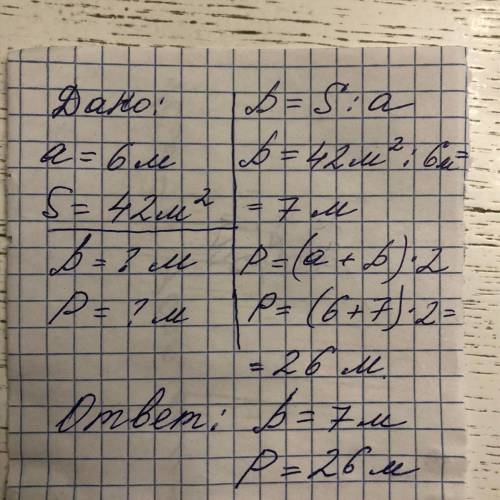 Дано:
a = 6 м
S = 42 м²
b = ? м
P = ? м
b = S : a
b = 42 м² : 6 м =
= 7 м
P = (a + b) · 2
P = (6 + 7) · 2 =
= 26 м.
Ответ: b = 7 м
P = 26 м